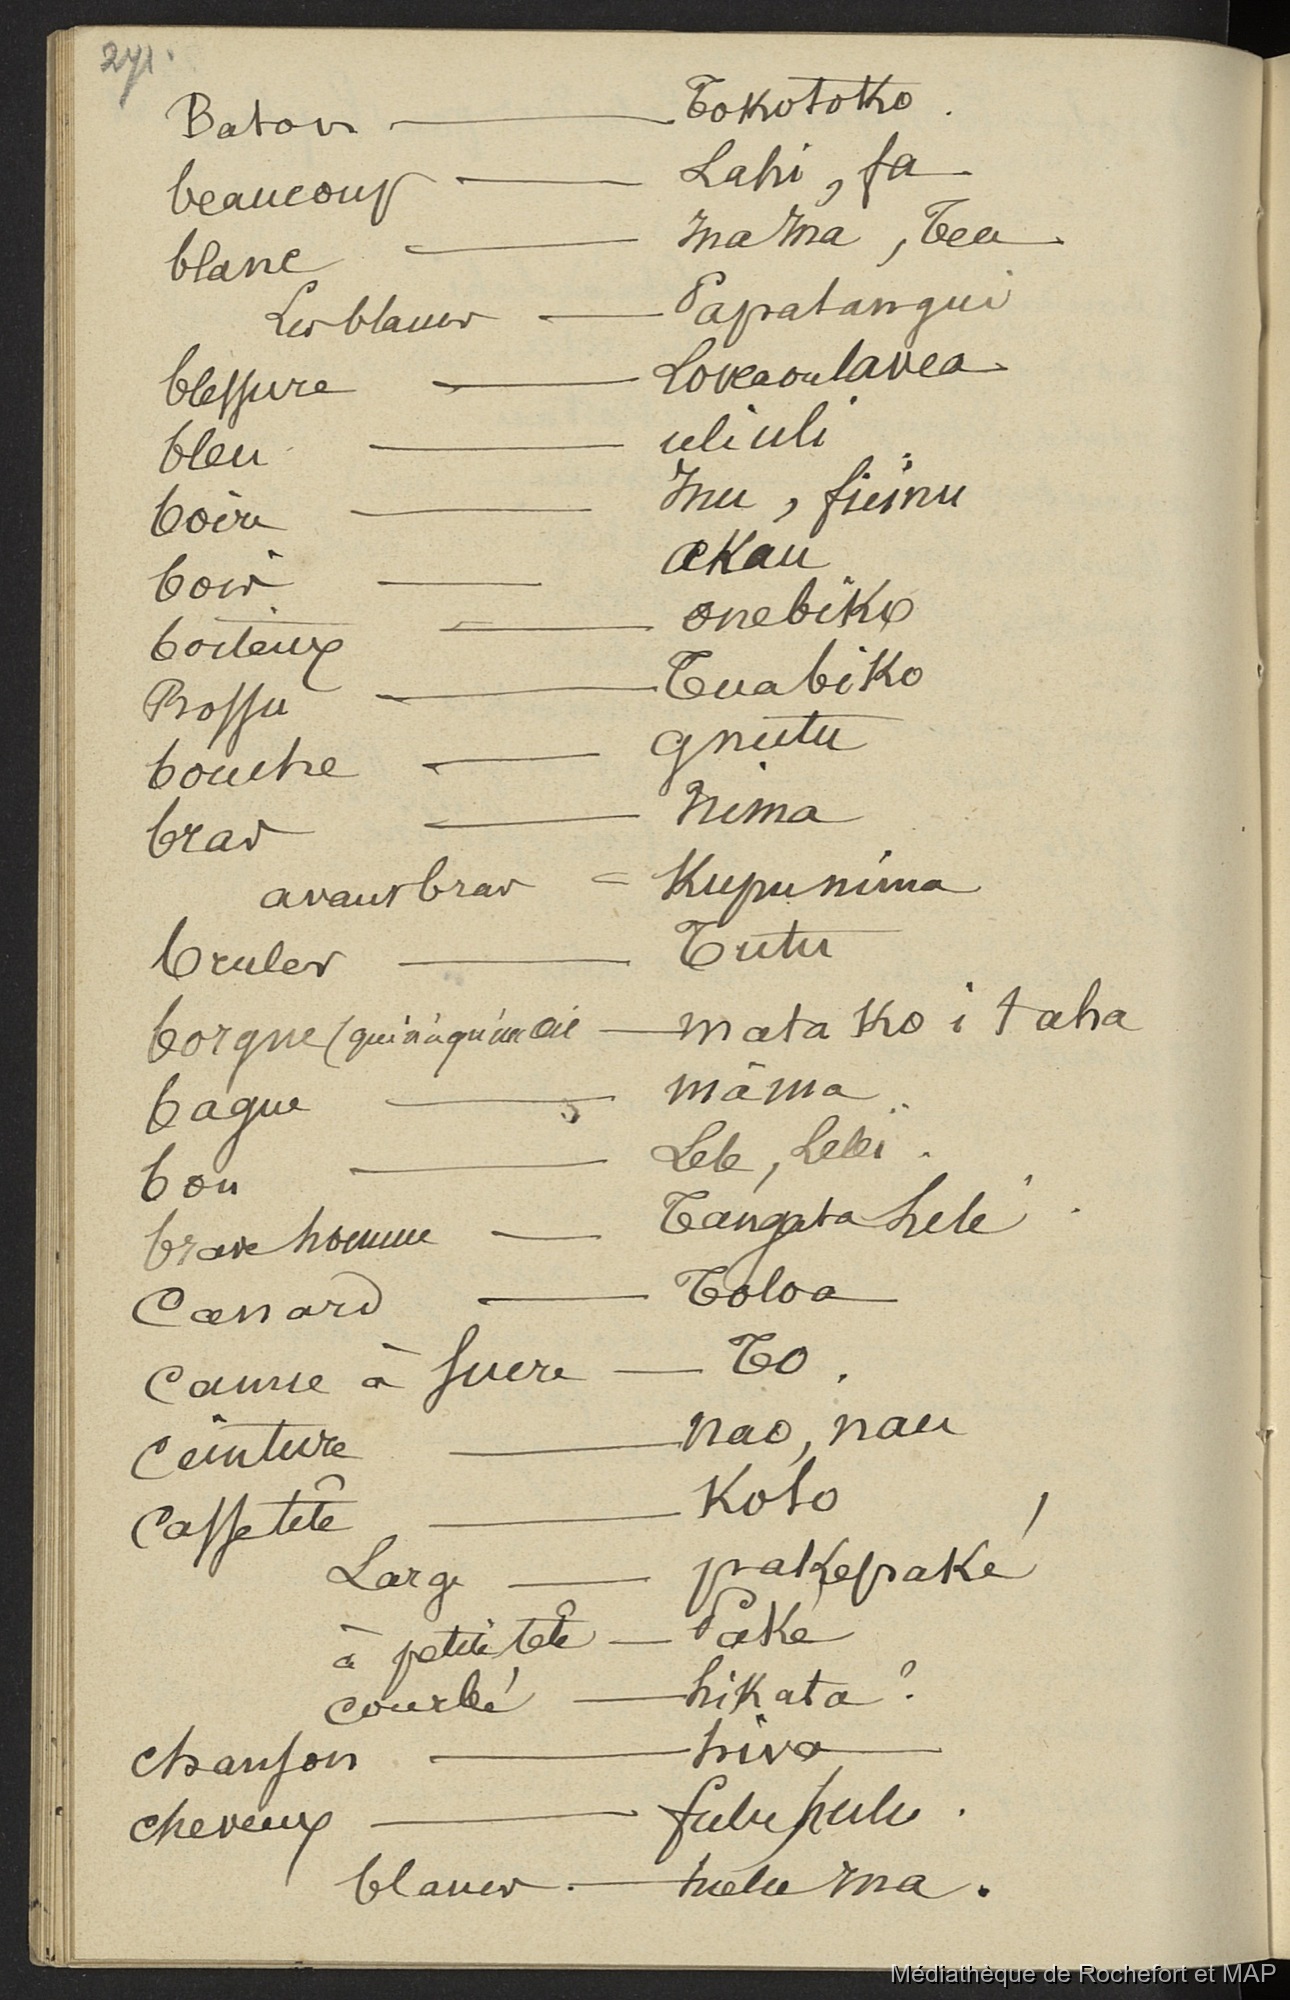 271.
Baton — Tokotoko.
beaucoup — Lahi, fa
blanc — mama, Tea
Les blancs — Papatangui
blessure — Lovea ou lavea
bleu — uliuli
boire — Inu, fieinu
bois — akau
boiteux — onebiko
Bossu — Tuabiko
bouche — gnutu
bras — nima
avant bras = Kupu nima
bruler — Tutu
borgne (qui n'a qu'un œil — mata ko i taha
bague — mâma
bon — Lele, Leleï.
brave homme — Tangata helé.
Canard — Toloa
Canne à sucre — To.
Ceinture — nao, nau
Casse tête — Kolo
Large — pakepaké
à petite tête — Pake
courbé — hikata?
chanson — hiva
cheveux — fulu hulu.
blancs. — hulu ma.
Médiathèque de Rochefort et MAP